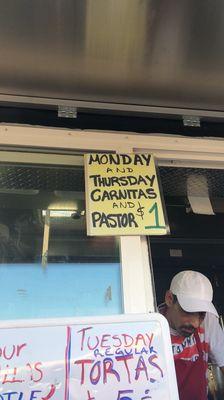 MONDAY
AND
THURSDAY
CARNITAS
AND
PASTOR $1
TUESDAY
REGULAR
TORTAS